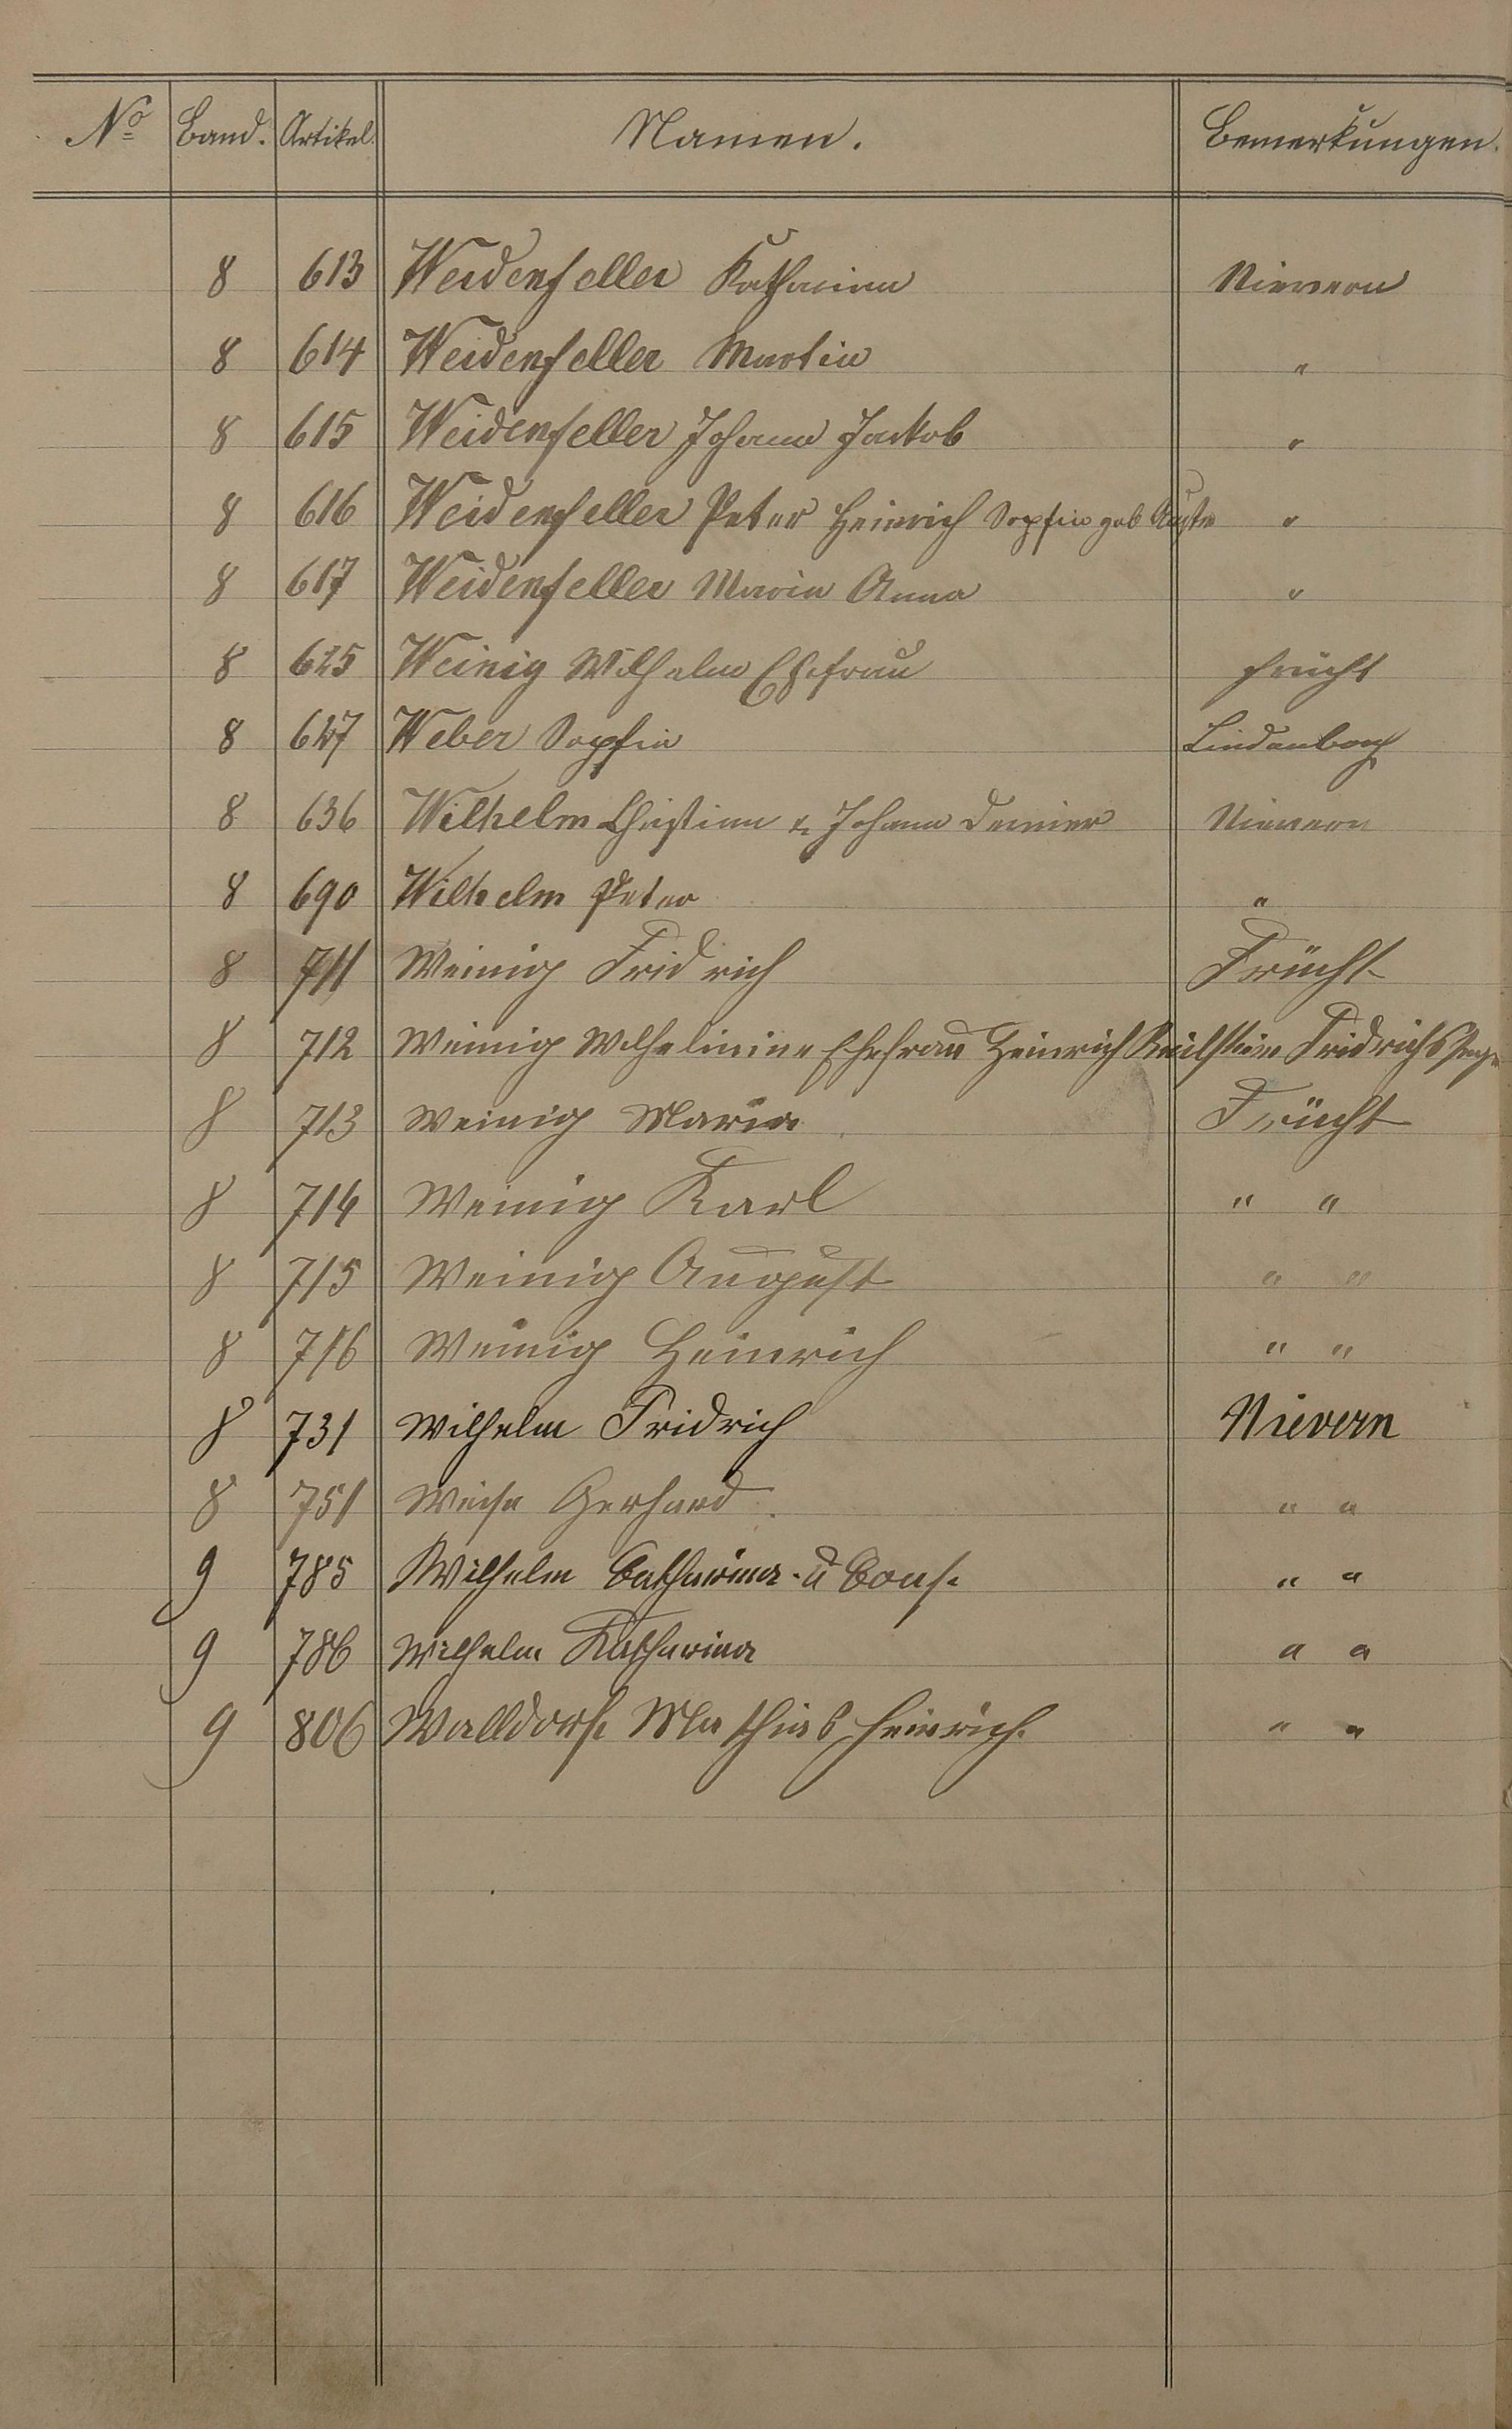 No Band. Artikel. Namen. Bemerkungen.
8 613 Weidenfeller Katharina Nievern
8 614 Weidenfeller Martin "
8 615 Weidenfeller Johann Jakob "
8 616 Weidenfeller Peter Heinrich Sophie geb "
8 617 Weidenfeller Maria Anna "
8 625 Weinig Wilhelm Ehefrau Frücht
8 627 Weber Sophie Lindenbach
8 636 Wilhelm Christian u Johann Nievern
8 690 Wilhelm Peter "
8 711 Weinig Fridrich Frücht
8 712 Weinig Wilhelmine Ehefrau Heinrich
8 713 Weinig Maria Frücht
8 714 Weinig Karl " "
8 715 Weinig August " "
8 716 Weinig Heinrich " "
8 731 Wilhelm Fridrich Nievern
8 751 Gerhard " "
9 785 Wilhelm Catharina u Cons. " "
9 786 Wilhelm Katharina " "
9 806 Walldorf Mathias Heinrich. " "